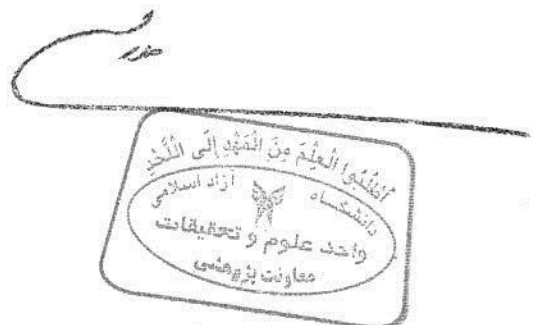 أطْلُبُوا الْعِلْمَ مِنَ الْمَهْدِ إِلَى اللَّحْدِ
دانشگاه آزاد اسلامی
واحد علوم و تحقیقات
معاونت پژوهشی